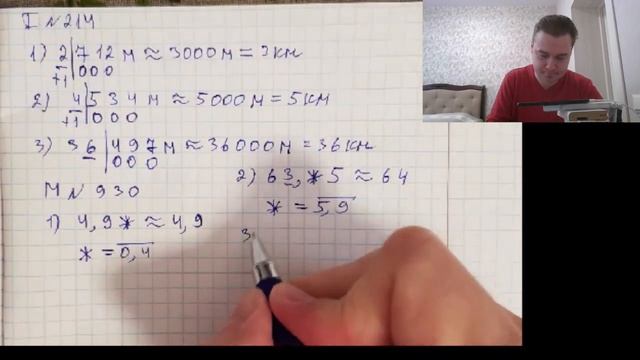 I № 214
1) 2|712 м ≈ 3000 м = 3 км
+1|000
2) 4|534 м ≈ 5000 м = 5 км
+1|000
3) 36|497 м ≈ 36000 м = 36 км
000
М № 930
1) 4,9* ≈ 4,9
* = 0,4
2) 63,*5 ≈ 64
* = 5,9
3